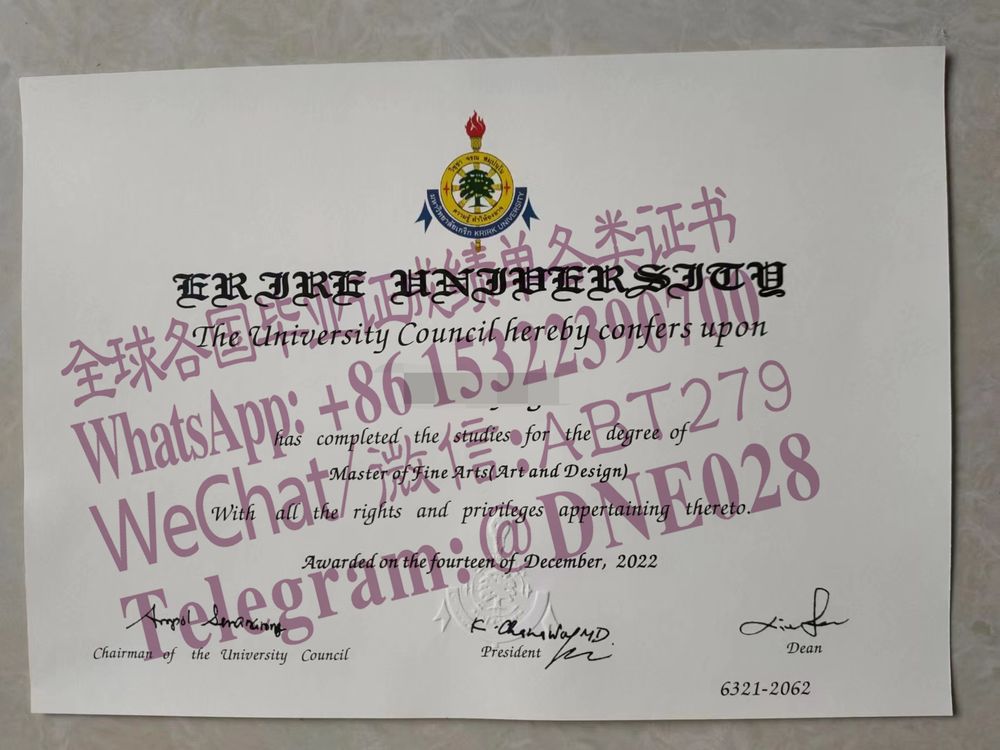 วิชา จรณ สมฺปนฺโน
ความรู้ ทำให้องอาจ
มหาวิทยาลัยเกริก KRIRK UNIVERSITY
ERIRE UNIVERSITY
The University Council hereby confers upon
has completed the studies for the degree of
Master of Fine Arts(Art and Design)
With all the rights and privileges appertaining thereto.
Awarded on the fourteen of December, 2022
Chairman of the University Council
President
Dean
6321-2062
全球各国毕业证成绩单各类证书
WhatsApp: +86 15322390700
WeChat/微信:ABT279
Telegram:@DNE028